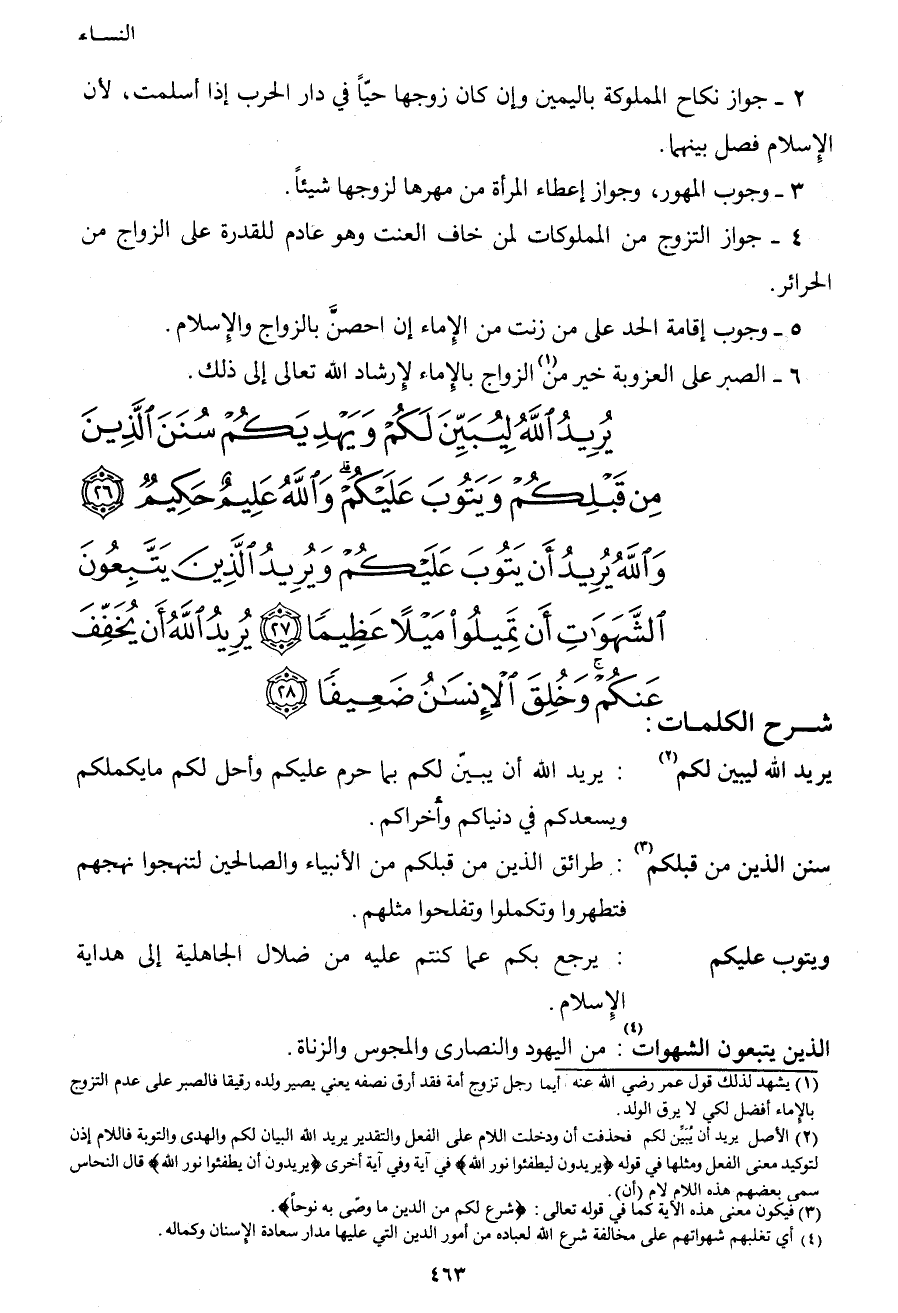 النساء
٢ - جواز نكاح المملوكة باليمين وإن كان زوجها حيّاً في دار الحرب إذا أسلمت، لأن
الإسلام فصل بينهما.
٣ - وجوب المهور، وجواز إعطاء المرأة من مهرها لزوجها شيئاً.
٤ - جواز التزوج من المملوكات لمن خاف العنت وهو عادم للقدرة على الزواج من
الحرائر.
٥ - وجوب إقامة الحد على من زنت من الإماء إن احصنَّ بالزواج والإسلام.
٦ - الصبر على العزوبة خير من(١) الزواج بالإماء لإرشاد الله تعالى إلى ذلك.
يُرِيدُ ٱللَّهُ لِيُبَيِّنَ لَكُمۡ وَيَهۡدِيَكُمۡ سُنَنَ ٱلَّذِينَ
مِن قَبۡلِكُمۡ وَيَتُوبَ عَلَيۡكُمۡۗ وَٱللَّهُ عَلِيمٌ حَكِيمٌ ٢٦
وَٱللَّهُ يُرِيدُ أَن يَتُوبَ عَلَيۡكُمۡ وَيُرِيدُ ٱلَّذِينَ يَتَّبِعُونَ
ٱلشَّهَوَٰتِ أَن تَمِيلُواْ مَيۡلًا عَظِيمٗا ٢٧ يُرِيدُ ٱللَّهُ أَن يُخَفِّفَ
عَنكُمۡۚ وَخُلِقَ ٱلۡإِنسَٰنُ ضَعِيفٗا ٢٨
شرح الكلمات :
يريد الله ليبين لكم(٢) : يريد الله أن يبيّن لكم بما حرم عليكم وأحل لكم مايكملكم
ويسعدكم في دنياكم وأخراكم.
سنن الذين من قبلكم(٣) : طرائق الذين من قبلكم من الأنبياء والصالحين لتنهجوا نهجهم
فتطهروا وتكملوا وتفلحوا مثلهم.
ويتوب عليكم : يرجع بكم عما كنتم عليه من ضلال الجاهلية إلى هداية
الإسلام.
الذين يتبعون الشهوات(٤) : من اليهود والنصارى والمجوس والزناة.
(١) يشهد لذلك قول عمر رضي الله عنه أيما رجل تزوج أمة فقد أرق نصفه يعني يصير ولده رقيقا فالصبر على عدم التزوج
بالإماء أفضل لكي لا يرق الولد.
(٢) الأصل يريد أن يُبَيِّن لكم فحذفت أن ودخلت اللام على الفعل والتقدير يريد الله البيان لكم والهدى والتوبة فاللام إذن
لتوكيد معنى الفعل ومثلها في قوله ﴿يريدون ليطفئوا نور الله﴾ في آية وفي آية أخرى ﴿يريدون أن يطفئوا نور الله﴾ قال النحاس
سمى بعضهم هذه اللام لام (أن).
(٣) فيكون معنى هذه الآية كما في قوله تعالى : ﴿شرع لكم من الدين ما وصّى به نوحاً﴾.
(٤) أي تغلبهم شهواتهم على مخالفة شرع الله لعباده من أمور الدين التي عليها مدار سعادة الإسنان وكماله.
٤٦٣